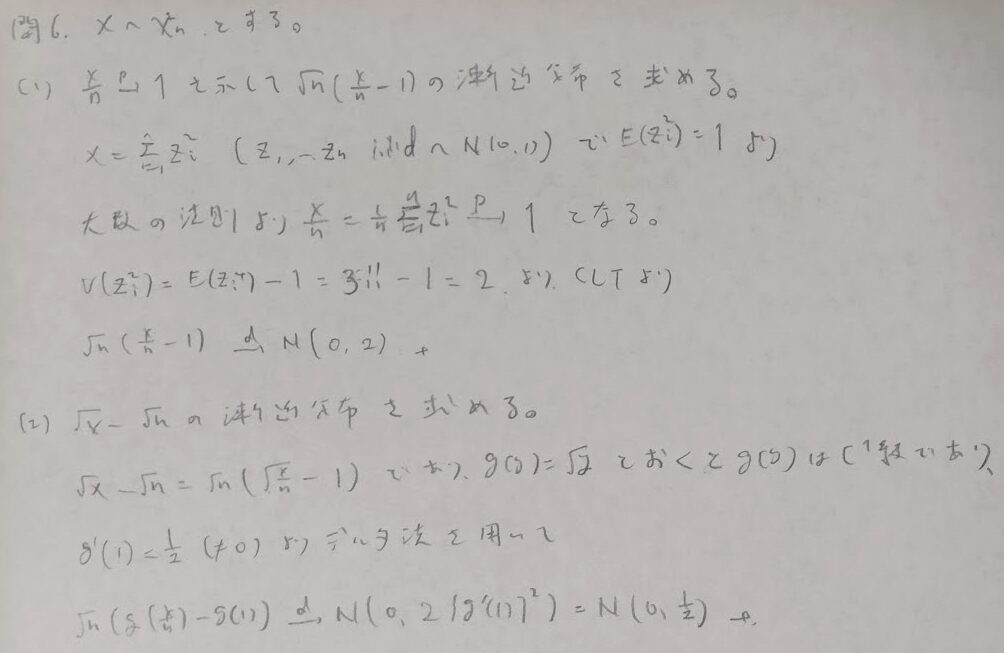 問6. X ~ χ²n とする。
(1) X/n →p 1 を示して √n(X/n - 1) の漸近分布を求める。
X = Σ_{i=1}^n Z_i² (Z_1, … Z_n i.i.d ~ N(0,1)) で E(Z_i²) = 1 より
大数の法則より X/n = 1/n Σ_{i=1}^n Z_i² →p 1 となる。
V(Z_i²) = E(Z_i⁴) - 1 = 3!! - 1 = 2 より、CLT より
√n (X/n - 1) →d N(0, 2) +
(2) √X - √n の漸近分布を求める。
√X - √n = √n (√(X/n) - 1) であり、g(y) = √y とおくと g(y) は C¹級であり、
g'(1) = 1/2 (≠0) よりデルタ法を用いて
√n (g(X/n) - g(1)) →d N(0, 2{g'(1)}²) = N(0, 1/2) +.